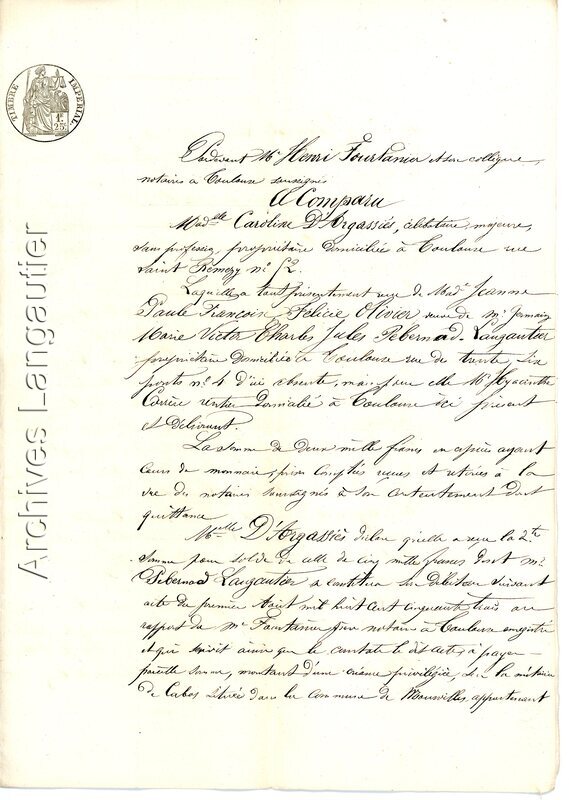 TIMBRE IMPERIAL
1F.
25c
Archives Langautier
Pardevant Me Henri Fourtanier et son collègue,
notaires à Toulouse soussignés
A Comparu
Madelle Caroline D'Argassiès, célibataire, majeure,
sans profession, propriétaire domiciliée à Toulouse rue
Saint Remezy no 52.
Laquelle a tout présentement reçu de Made Jeanne
Paule François Félicie Olivier veuve de Mr Germain
Marie Victor Charles Jules Pebernad Langautier
propriétaire domiciliée à Toulouse rue de trente six
ponts no 4 d'ici absente, mais pour elle Mr Hyacinthe
Carrière rentier domicilié à Toulouse ici présent
et délivrant.
La somme de deux mille francs en espèces ayant
cours de monnaie, prises comptées reçues et retirées à la
vue des notaires soussignés à son contentement dont
quittance.
Melle D'Argassiès déclare qu'elle a reçu la dte
somme pour solde de celle de cinq mille francs dont Mr
Pebernad Langautier se constitua son débiteur suivant
acte du premier Août mil huit cent cinquante trois au
rapport de Me Fourtanier notaire à Toulouse enregistré
et qui servit ainsi que le constate le dit acte, à payer
pareille somme, montant d'une créance privilégiée, sur la métairie
de Cabos située dans la commune de Mourvilles, appartenant